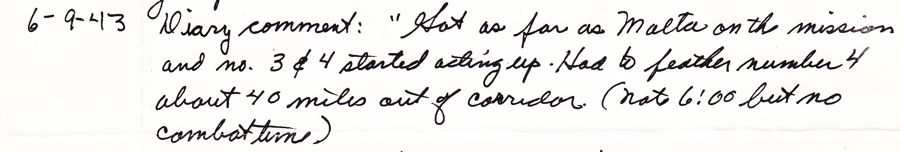 6-9-43 Diary comment: "Got as far as Malta on the mission
and no. 3 & 4 started acting up. Had to feather number 4
about 40 miles out of corridor. (note 6:00 but no
combat time)